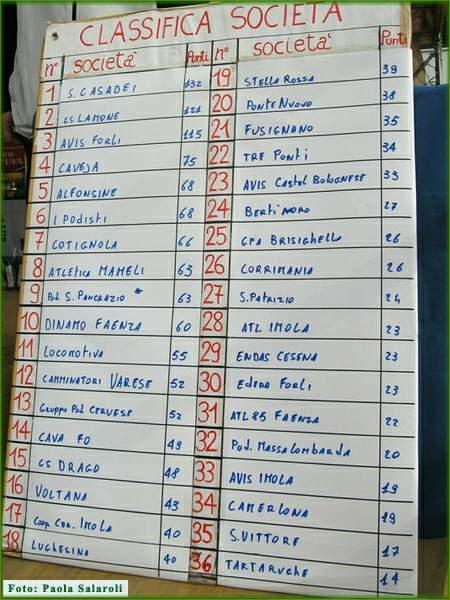 CLASSIFICA SOCIETÀ
n° società Punti
1 S. CASADEI 132
2 CS LAMONE 121
3 AVIS FORLI 115
4 CAVEJA 75
5 ALFONSINE 68
6 I PODISTI 68
7 COTIGNOLA 66
8 ATLETICA MAMELI 63
9 Pod. S. PANCRAZIO * 63
10 DINAMO FAENZA 60
11 LOCOMOTIVA 55
12 CAMMINATORI VARESE 52
13 GRUPPO Pod CERVESE 52
14 CAVA FO 49
15 CS DRAGO 48
16 VOLTANA 43
17 Coop. Cer. IMOLA 40
18 LUGHESINA 40
n° società Punti
19 STELLA ROSSA 39
20 PONTE NUOVO 38
21 FUSIGNANO 35
22 TRE PONTI 34
23 AVIS Castel Bolognese 33
24 BERTINORO 27
25 GPA BRISIGHELLA 26
26 CORRIMANIA 26
27 S. PATRIZIO 24
28 ATL. IMOLA 23
29 ENDAS CESENA 23
30 Edera Forlì 23
31 ATL 85 FAENZA 22
32 Pod. Massalombarda 20
33 AVIS IMOLA 19
34 CAMERLONA 19
35 S. VITTORE 17
36 TARTARUGHE 14
Foto: Paola Salaroli